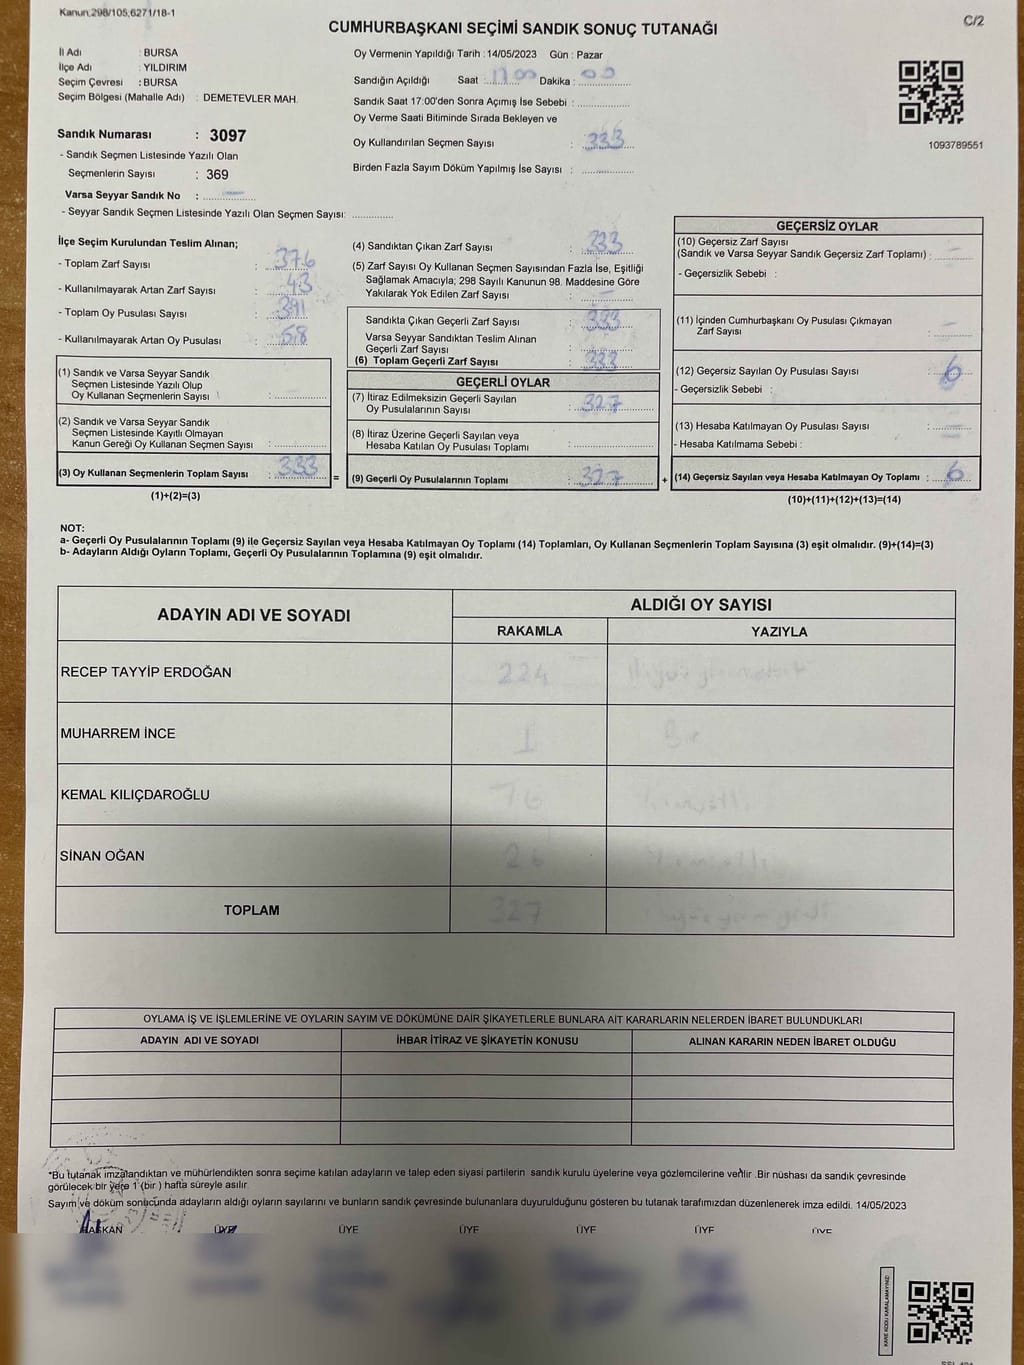 Kanun,298/105,6271/18-1
C/2
CUMHURBAŞKANI SEÇİMİ SANDIK SONUÇ TUTANAĞI
İl Adı : BURSA
İlçe Adı : YILDIRIM
Seçim Çevresi : BURSA
Seçim Bölgesi (Mahalle Adı) : DEMETEVLER MAH.
Oy Vermenin Yapıldığı Tarih : 14/05/2023 Gün : Pazar
Sandığın Açıldığı Saat : 17 00 Dakika : 00
Sandık Saat 17:00'den Sonra Açımış İse Sebebi :
Oy Verme Saati Bitiminde Sırada Bekleyen ve
Oy Kullandırılan Seçmen Sayısı : 333
Birden Fazla Sayım Döküm Yapılmış İse Sayısı :
1093789551
Sandık Numarası : 3097
- Sandık Seçmen Listesinde Yazılı Olan
Seçmenlerin Sayısı : 369
Varsa Seyyar Sandık No : —
- Seyyar Sandık Seçmen Listesinde Yazılı Olan Seçmen Sayısı:
İlçe Seçim Kurulundan Teslim Alınan;
- Toplam Zarf Sayısı : 376
- Kullanılmayarak Artan Zarf Sayısı : 43
- Toplam Oy Pusulası Sayısı : 391
- Kullanılmayarak Artan Oy Pusulası : 58
(1) Sandık ve Varsa Seyyar Sandık
Seçmen Listesinde Yazılı Olup
Oy Kullanan Seçmenlerin Sayısı :
(2) Sandık ve Varsa Seyyar Sandık
Seçmen Listesinde Kayıtlı Olmayan
Kanun Gereği Oy Kullanan Seçmen Sayısı :
(3) Oy Kullanan Seçmenlerin Toplam Sayısı : 333
(1)+(2)=(3)
(4) Sandıktan Çıkan Zarf Sayısı : 333
(5) Zarf Sayısı Oy Kullanan Seçmen Sayısından Fazla İse, Eşitliği
Sağlamak Amacıyla; 298 Sayılı Kanunun 98. Maddesine Göre
Yakılarak Yok Edilen Zarf Sayısı : —
Sandıkta Çıkan Geçerli Zarf Sayısı : 333
Varsa Seyyar Sandıktan Teslim Alınan
Geçerli Zarf Sayısı :
(6) Toplam Geçerli Zarf Sayısı : 333
GEÇERLİ OYLAR
(7) İtiraz Edilmeksizin Geçerli Sayılan
Oy Pusulalarının Sayısı : 327
(8) İtiraz Üzerine Geçerli Sayılan veya
Hesaba Katılan Oy Pusulası Toplamı :
= (9) Geçerli Oy Pusulalarının Toplamı : 327
GEÇERSİZ OYLAR
(10) Geçersiz Zarf Sayısı
(Sandık ve Varsa Seyyar Sandık Geçersiz Zarf Toplamı) : —
- Geçersizlik Sebebi :
(11) İçinden Cumhurbaşkanı Oy Pusulası Çıkmayan
Zarf Sayısı : —
(12) Geçersiz Sayılan Oy Pusulası Sayısı : 6
- Geçersizlik Sebebi :
(13) Hesaba Katılmayan Oy Pusulası Sayısı : —
- Hesaba Katılmama Sebebi : —
+ (14) Geçersiz Sayılan veya Hesaba Katılmayan Oy Toplamı : 6
(10)+(11)+(12)+(13)=(14)
NOT:
a- Geçerli Oy Pusulalarının Toplamı (9) ile Geçersiz Sayılan veya Hesaba Katılmayan Oy Toplamı (14) Toplamları, Oy Kullanan Seçmenlerin Toplam Sayısına (3) eşit olmalıdır. (9)+(14)=(3)
b- Adayların Aldığı Oyların Toplamı, Geçerli Oy Pusulalarının Toplamına (9) eşit olmalıdır.
ADAYIN ADI VE SOYADI
ALDIĞI OY SAYISI
RAKAMLA YAZIYLA
RECEP TAYYİP ERDOĞAN 224
MUHARREM İNCE 1 Bir
KEMAL KILIÇDAROĞLU 76
SİNAN OĞAN 26
TOPLAM 327
OYLAMA İŞ VE İŞLEMLERİNE VE OYLARIN SAYIM VE DÖKÜMÜNE DAİR ŞİKAYETLERLE BUNLARA AİT KARARLARIN NELERDEN İBARET BULUNDUKLARI
ADAYIN ADI VE SOYADI İHBAR İTİRAZ VE ŞİKAYETİN KONUSU ALINAN KARARIN NEDEN İBARET OLDUĞU
*Bu tutanak imzalandıktan ve mühürlendikten sonra seçime katılan adayların ve talep eden siyasi partilerin sandık kurulu üyelerine veya gözlemcilerine verilir .Bir nüshası da sandık çevresinde
görülecek bir yere 1 (bir ) hafta süreyle asılır.
Sayım ve döküm sonucunda adayların aldığı oyların sayılarını ve bunların sandık çevresinde bulunanlara duyurulduğunu gösteren bu tutanak tarafımızdan düzenlenerek imza edildi. 14/05/2023
BAŞKAN ÜYE ÜYE ÜYE ÜYE ÜYE ÜYE
KARE KODU KARALAMAYINIZ!